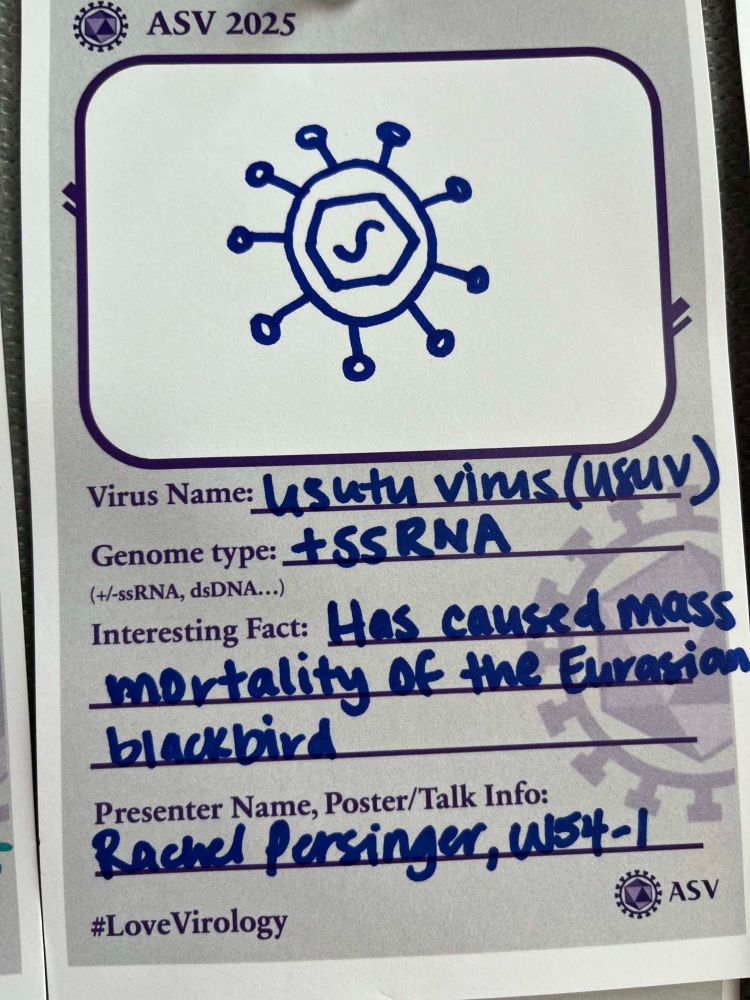 ASV 2025
Virus Name: Usutu virus (USUV)
Genome type: +ssRNA
(+/-ssRNA, dsDNA...)
Interesting Fact: Has caused mass
mortality of the Eurasian
blackbird
Presenter Name, Poster/Talk Info:
Rachel Persinger, W54-1
ASV
#LoveVirology